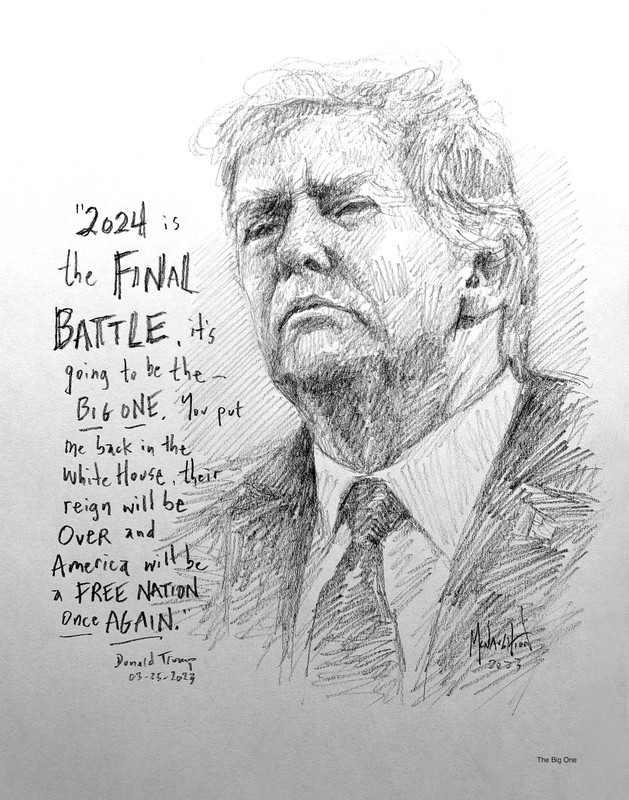 "2024 is
the FINAL
BATTLE, it's
going to be the –
BIG ONE. You put
me back in the
White House, their
reign will be
OVER and
America will be
a FREE NATION
Once AGAIN."
Donald Trump
03-25-2023
McNaughton
2023
The Big One